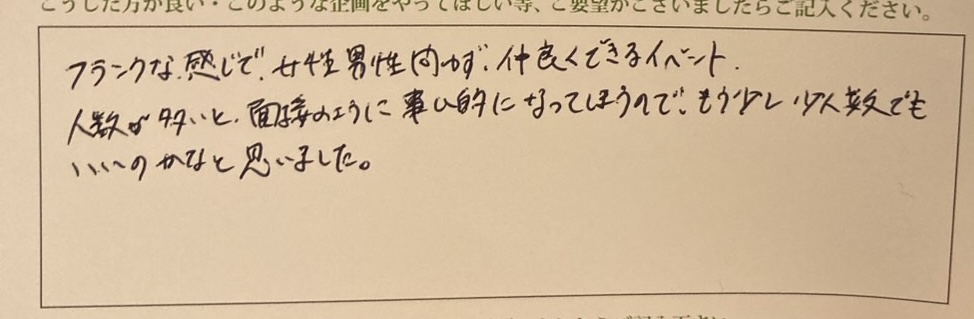 こうした方が良い・このような企画をやってほしい等、ご要望がございましたらご記入ください。
フランクな感じで、女性男性問わず、仲良くできるイベント.
人数が多いと、面接のように事ム的になってしまうので、もう少し少人数でも
いいのかなと思いました。